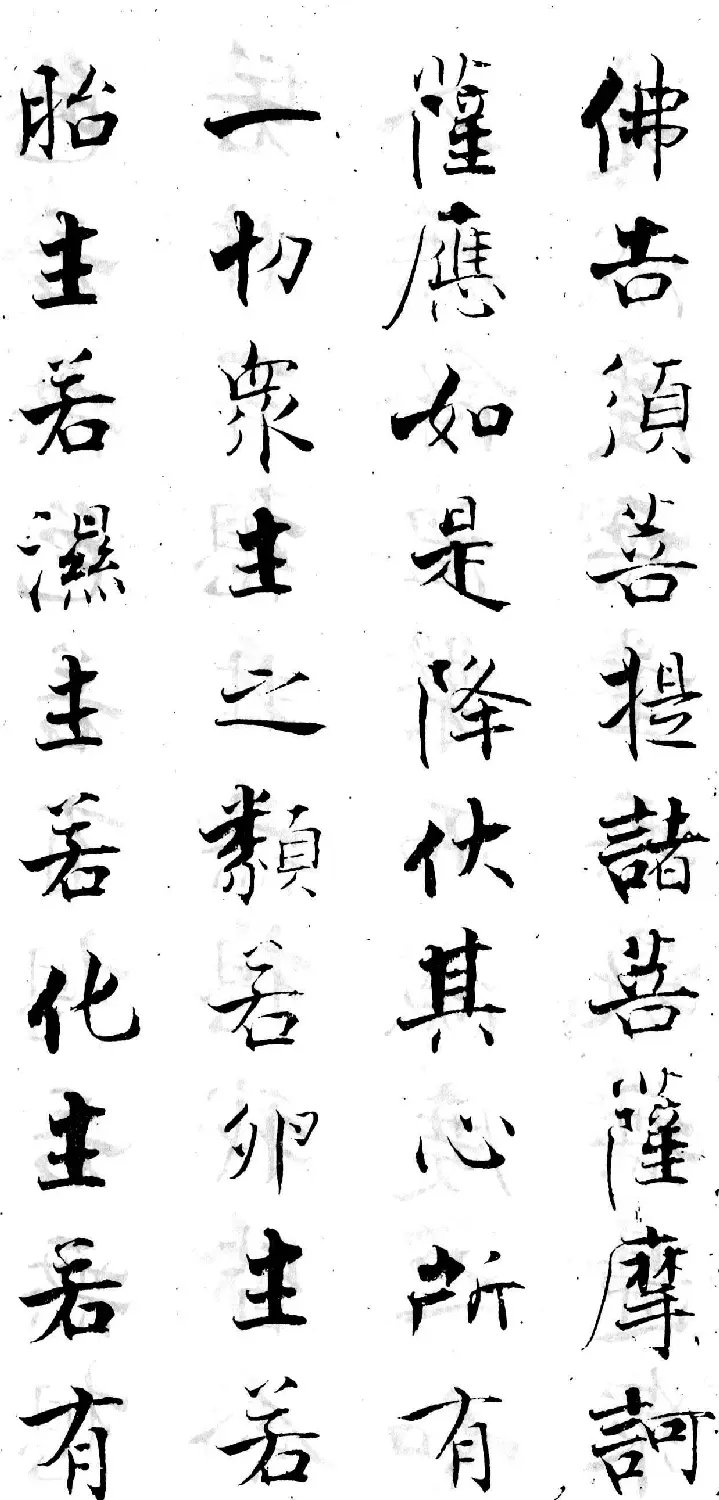 佛告須菩提諸菩薩摩訶
薩應如是降伏其心所有
一切衆生之類若卵生若
胎生若濕生若化生若有